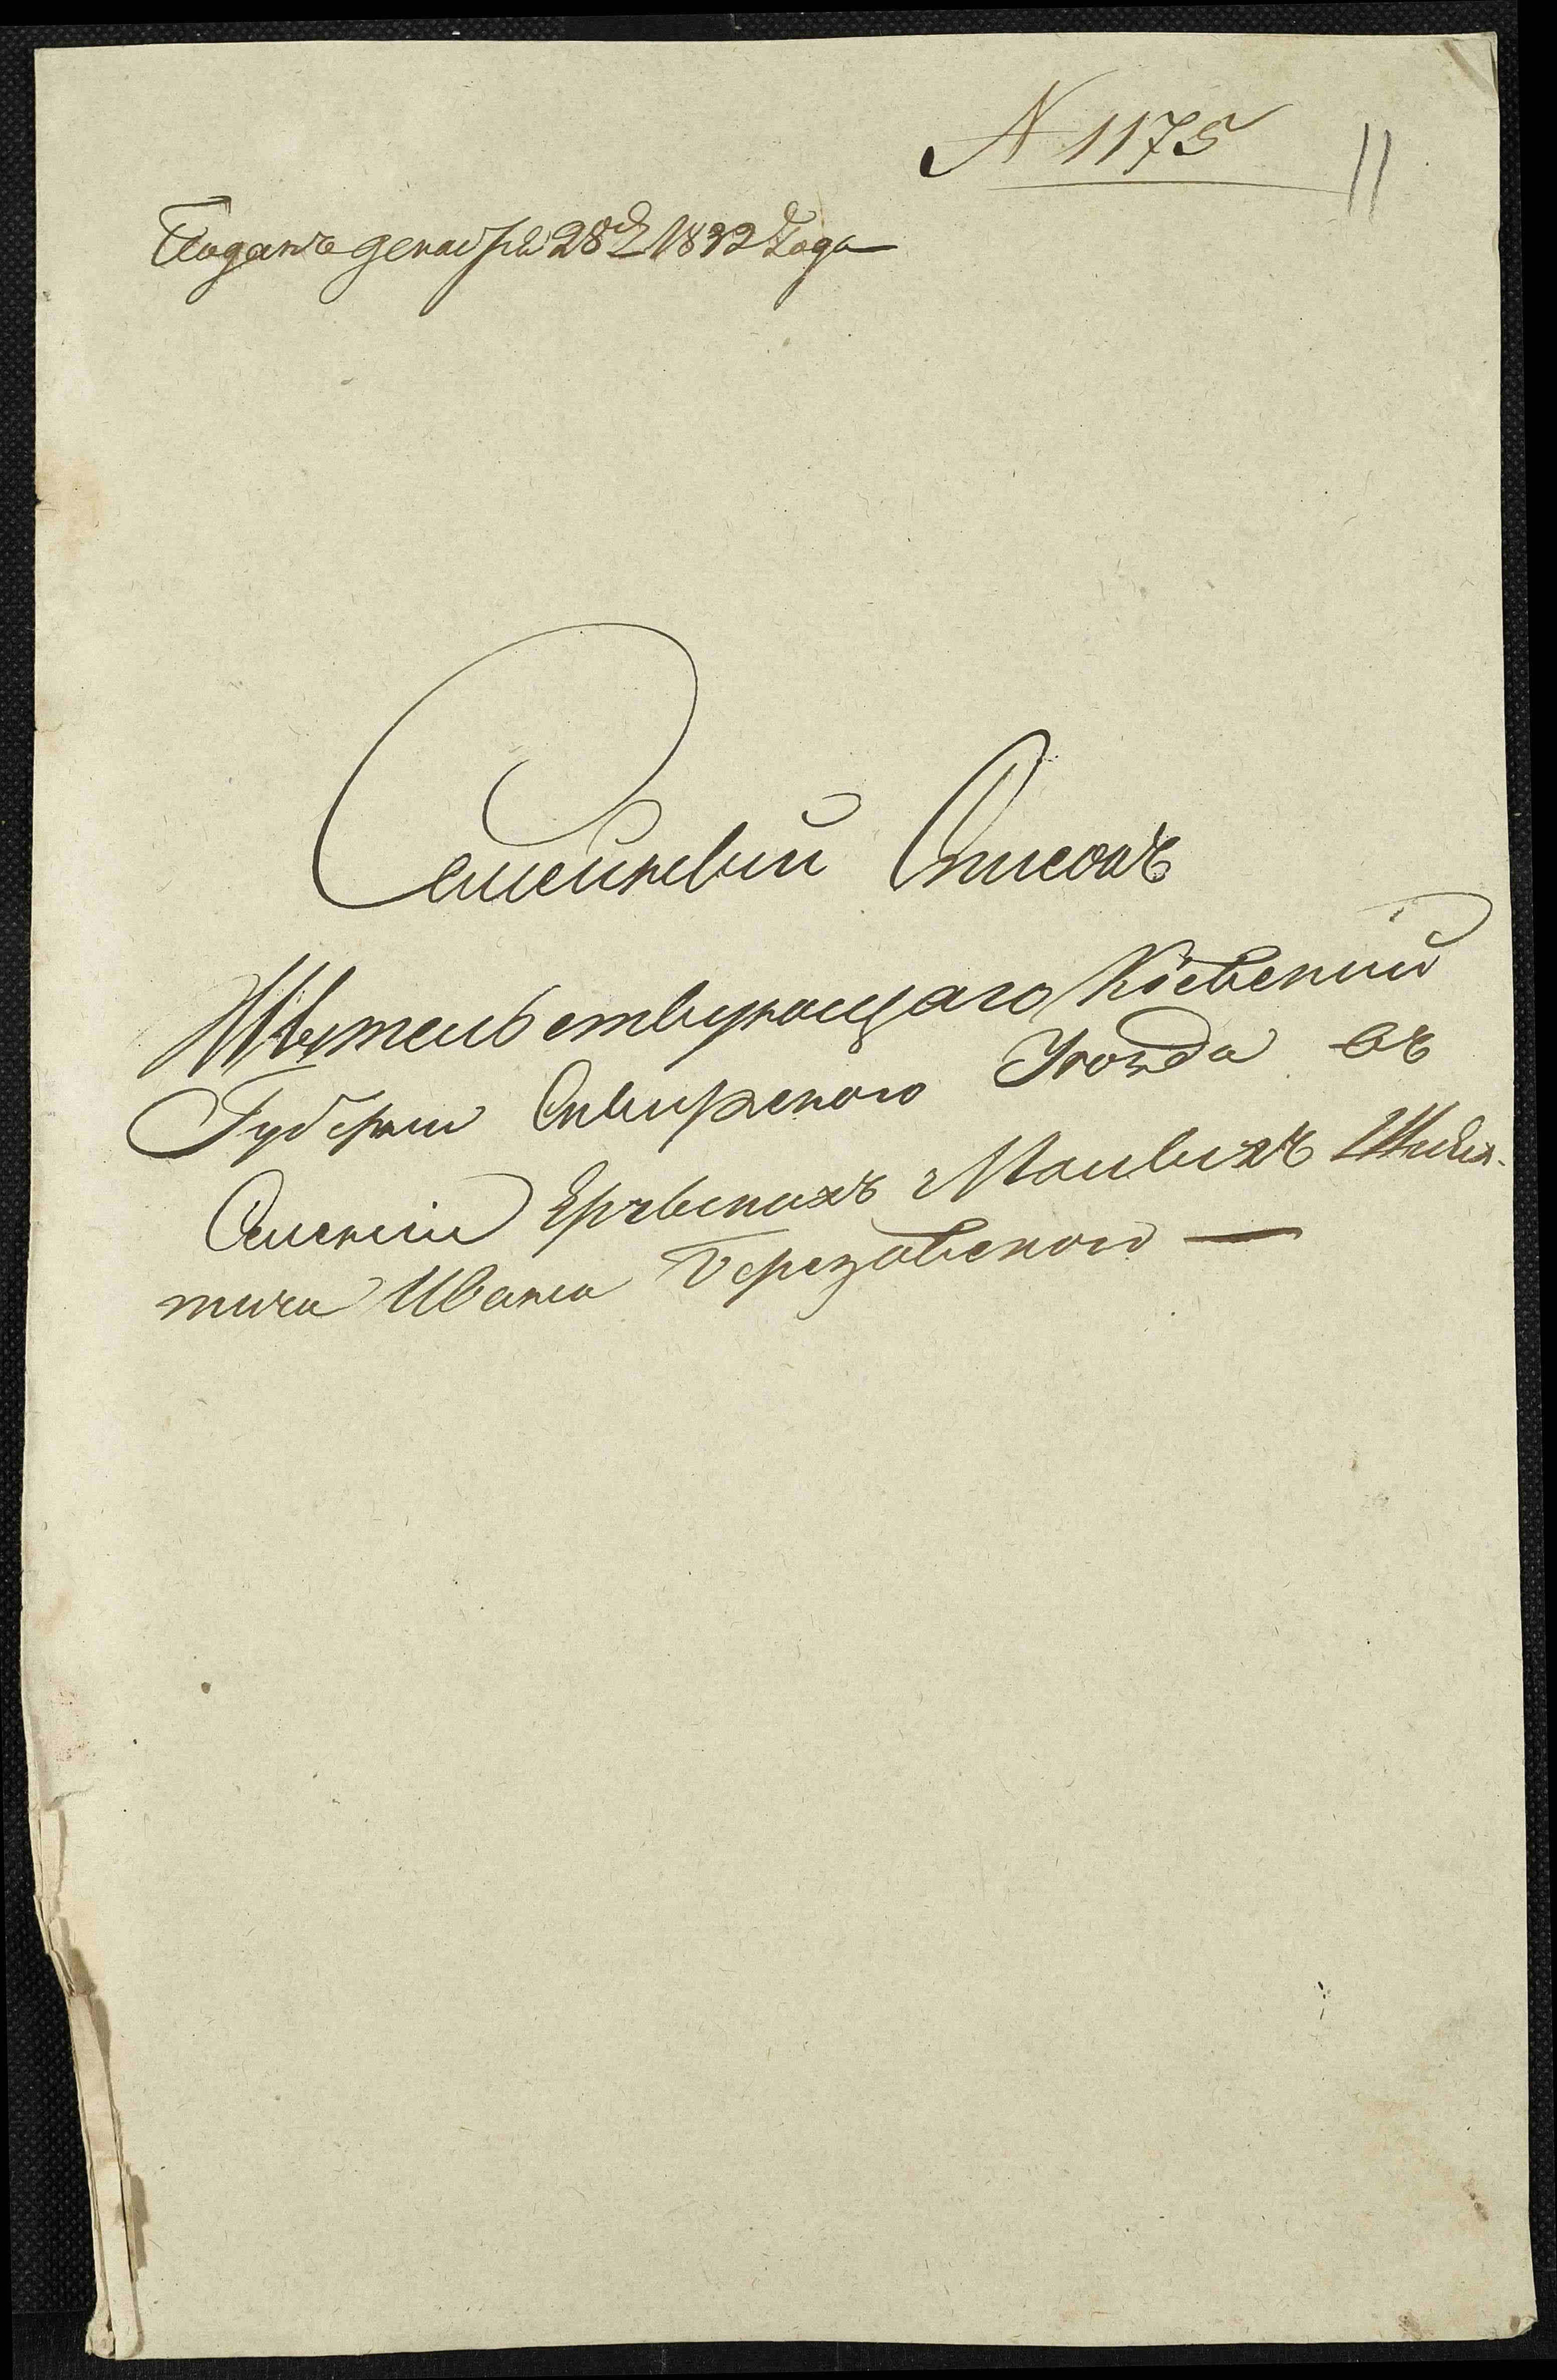 N 1175
11
Поданъ декабря 28го 1832 года
Семейный Списокъ
Жытельствующаго Кіевскии
Губернии Сквирского Уюзда въ
Селении Ерчыкахъ Малыхъ Шлях-
тича Ивана Березовского —